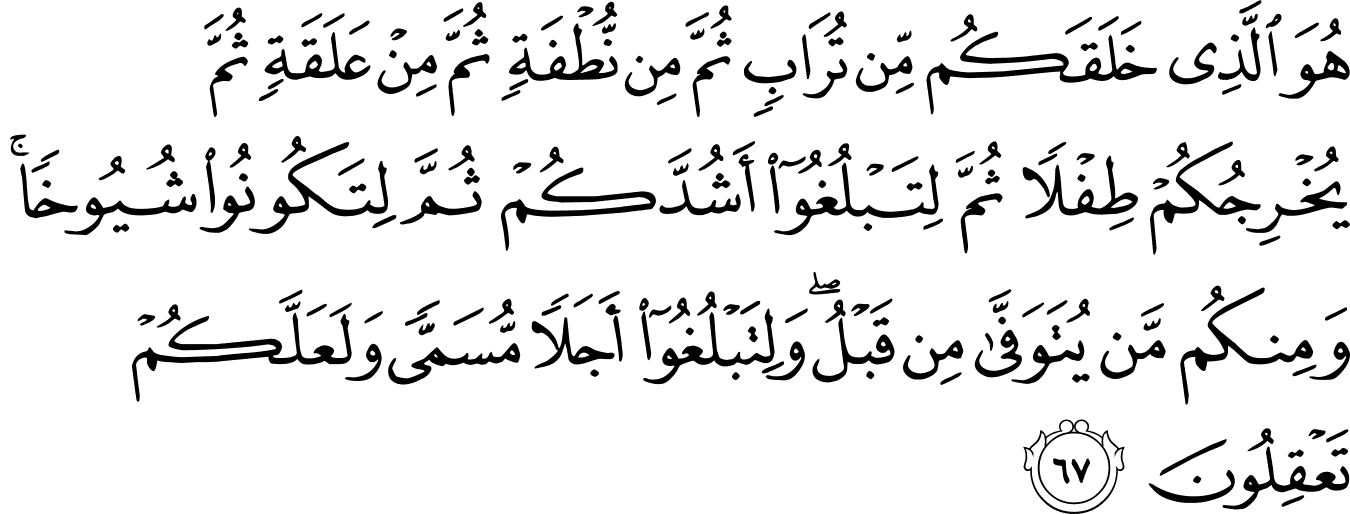 هُوَ ٱلَّذِى خَلَقَكُم مِّن تُرَابٍ ثُمَّ مِن نُّطْفَةٍ ثُمَّ مِنْ عَلَقَةٍ ثُمَّ
يُخْرِجُكُمْ طِفْلًا ثُمَّ لِتَبْلُغُوٓا۟ أَشُدَّكُمْ ثُمَّ لِتَكُونُوا۟ شُيُوخًا ۚ
وَمِنكُم مَّن يُتَوَفَّىٰ مِن قَبْلُ ۖ وَلِتَبْلُغُوٓا۟ أَجَلًا مُّسَمًّى وَلَعَلَّكُمْ
تَعْقِلُونَ ٦٧